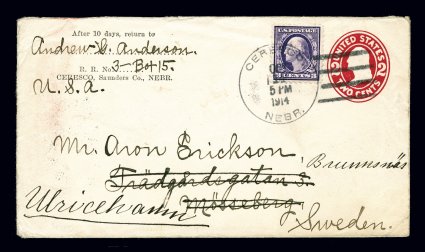 After 10 days, return to
Andrew C. Anderson.
R. R. No. 3-Box 15.
CERESCO, Saunders Co., NEBR.
U. S. A.
CERESCO
5 PM
1914
NEBR.
3 CENTS 3
UNITED STATES
2 2
TWO CENTS
Mr. Aron Erickson
Trädgårdsgatan 3.
Brunnsnäs
Ulricehamn
Mösseberg.
Sweden.